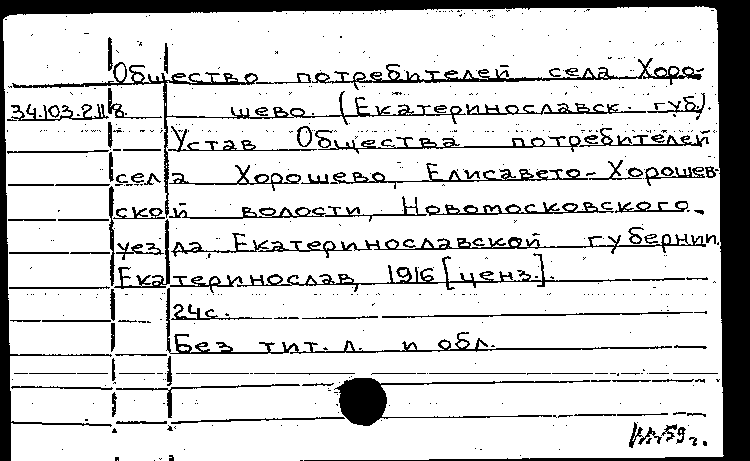 Общество потребителей села Хоро-
34.103.2.118. шево. (Екатеринославск. губ).
Устав Общества потребителей
села Хорошево, Елисавето-Хорошев-
ской волости, Новомосковского
уезда, Екатеринославской губернии.
Екатеринослав, 1916 [ценз.].
24с.
Без тит. л. и обл.
59 г.